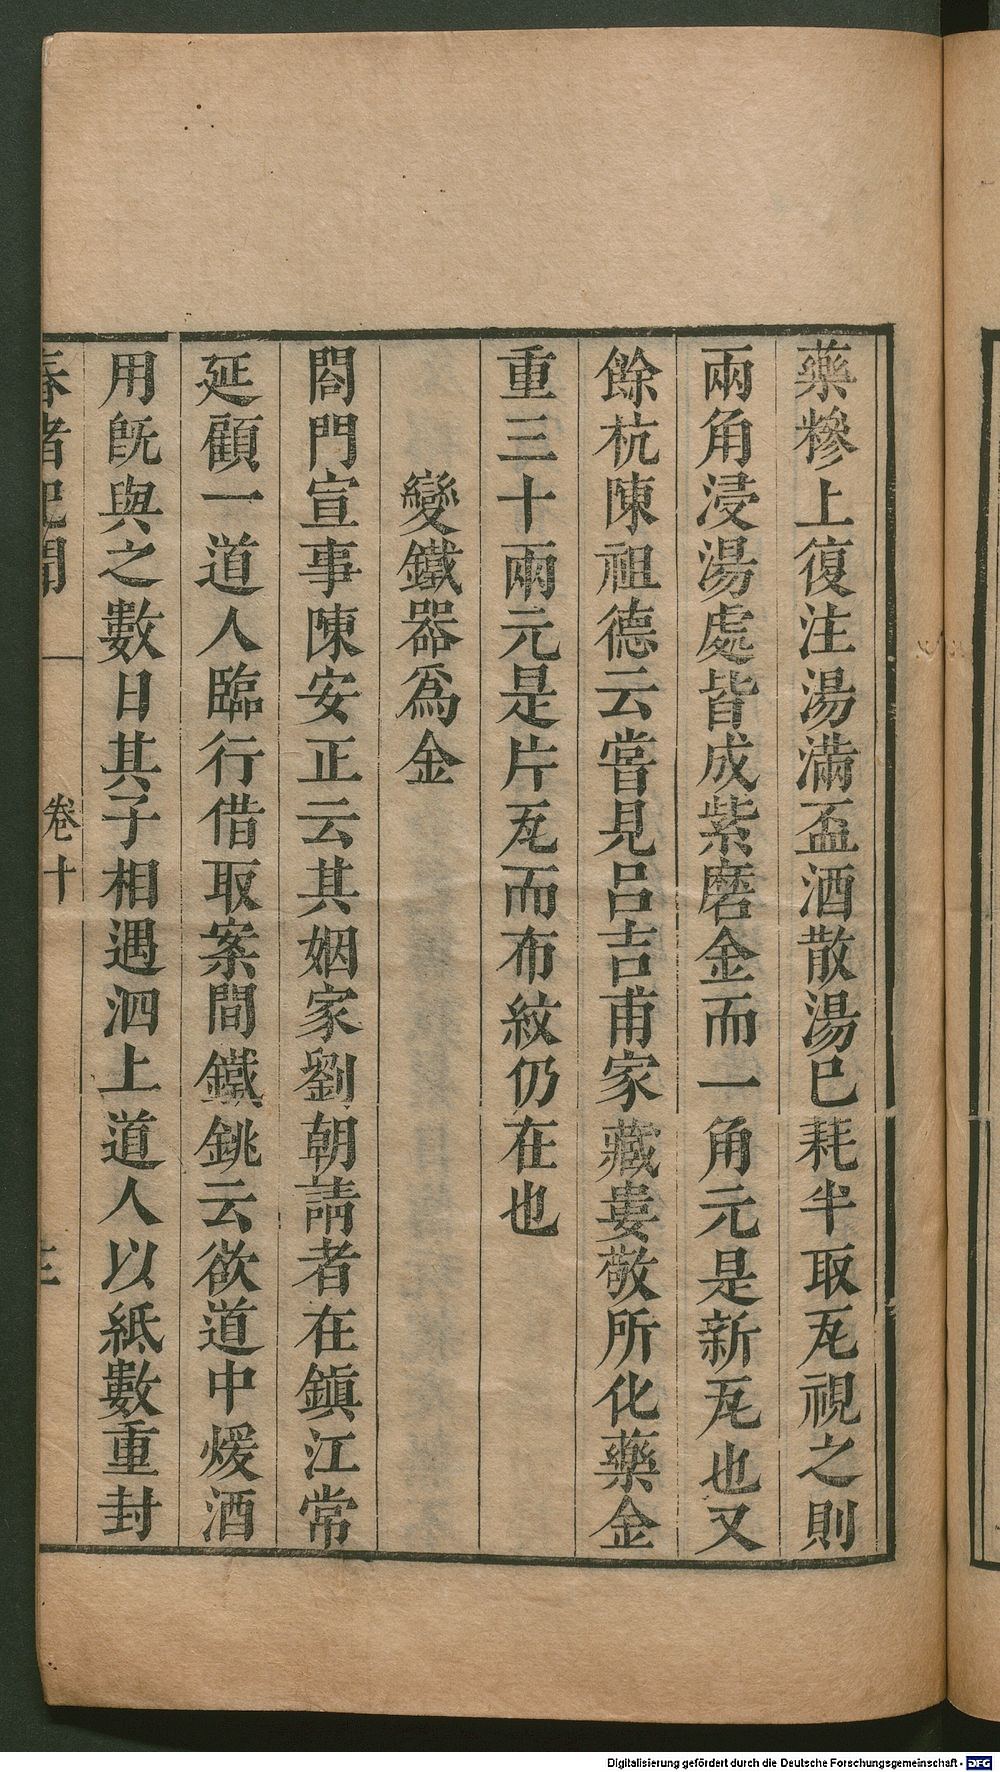 藥糝上復注湯滿盃酒散湯已耗半取瓦視之則
兩角浸湯處皆成紫磨金而一角元是新瓦也又
餘杭陳祖德云嘗見呂吉甫家藏婁敬所化藥金
重三十兩元是片瓦而布紋仍在也
變鐵器爲金
閤門宣事陳安正云其姻家劉朝請者在鎮江常
延顧一道人臨行借取案間鐵銚云欲道中煖酒
用旣與之數日其子相遇泗上道人以紙數重封
春渚紀聞
卷十
三
Digitalisierung gefördert durch die Deutsche Forschungsgemeinschaft - DFG